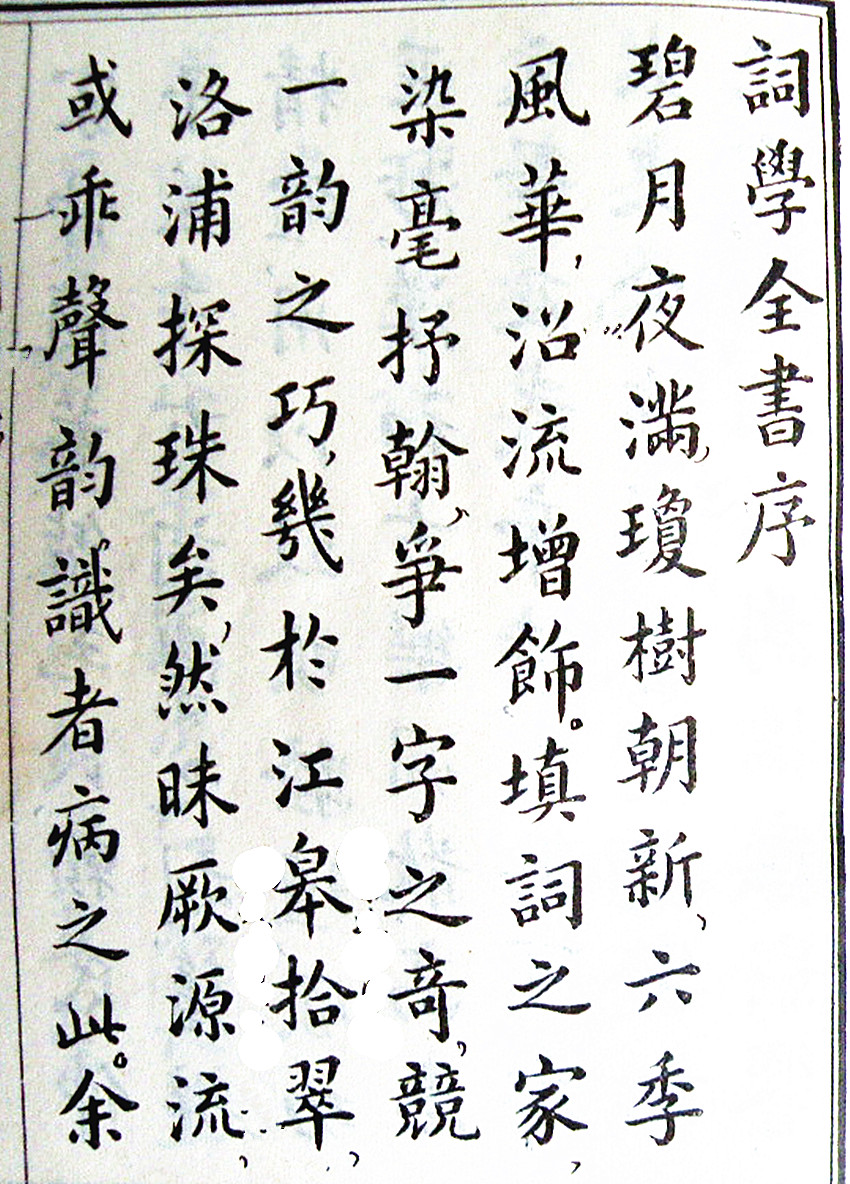 詞學全書序
碧月夜滿，瓊樹朝新，六季
風華，沿流增飾。填詞之家，
染毫抒翰，爭一字之奇，競
一韵之巧，幾於江皋拾翠，
洛浦探珠矣，然昧厥源流，
或乖聲韵，識者病之此。余